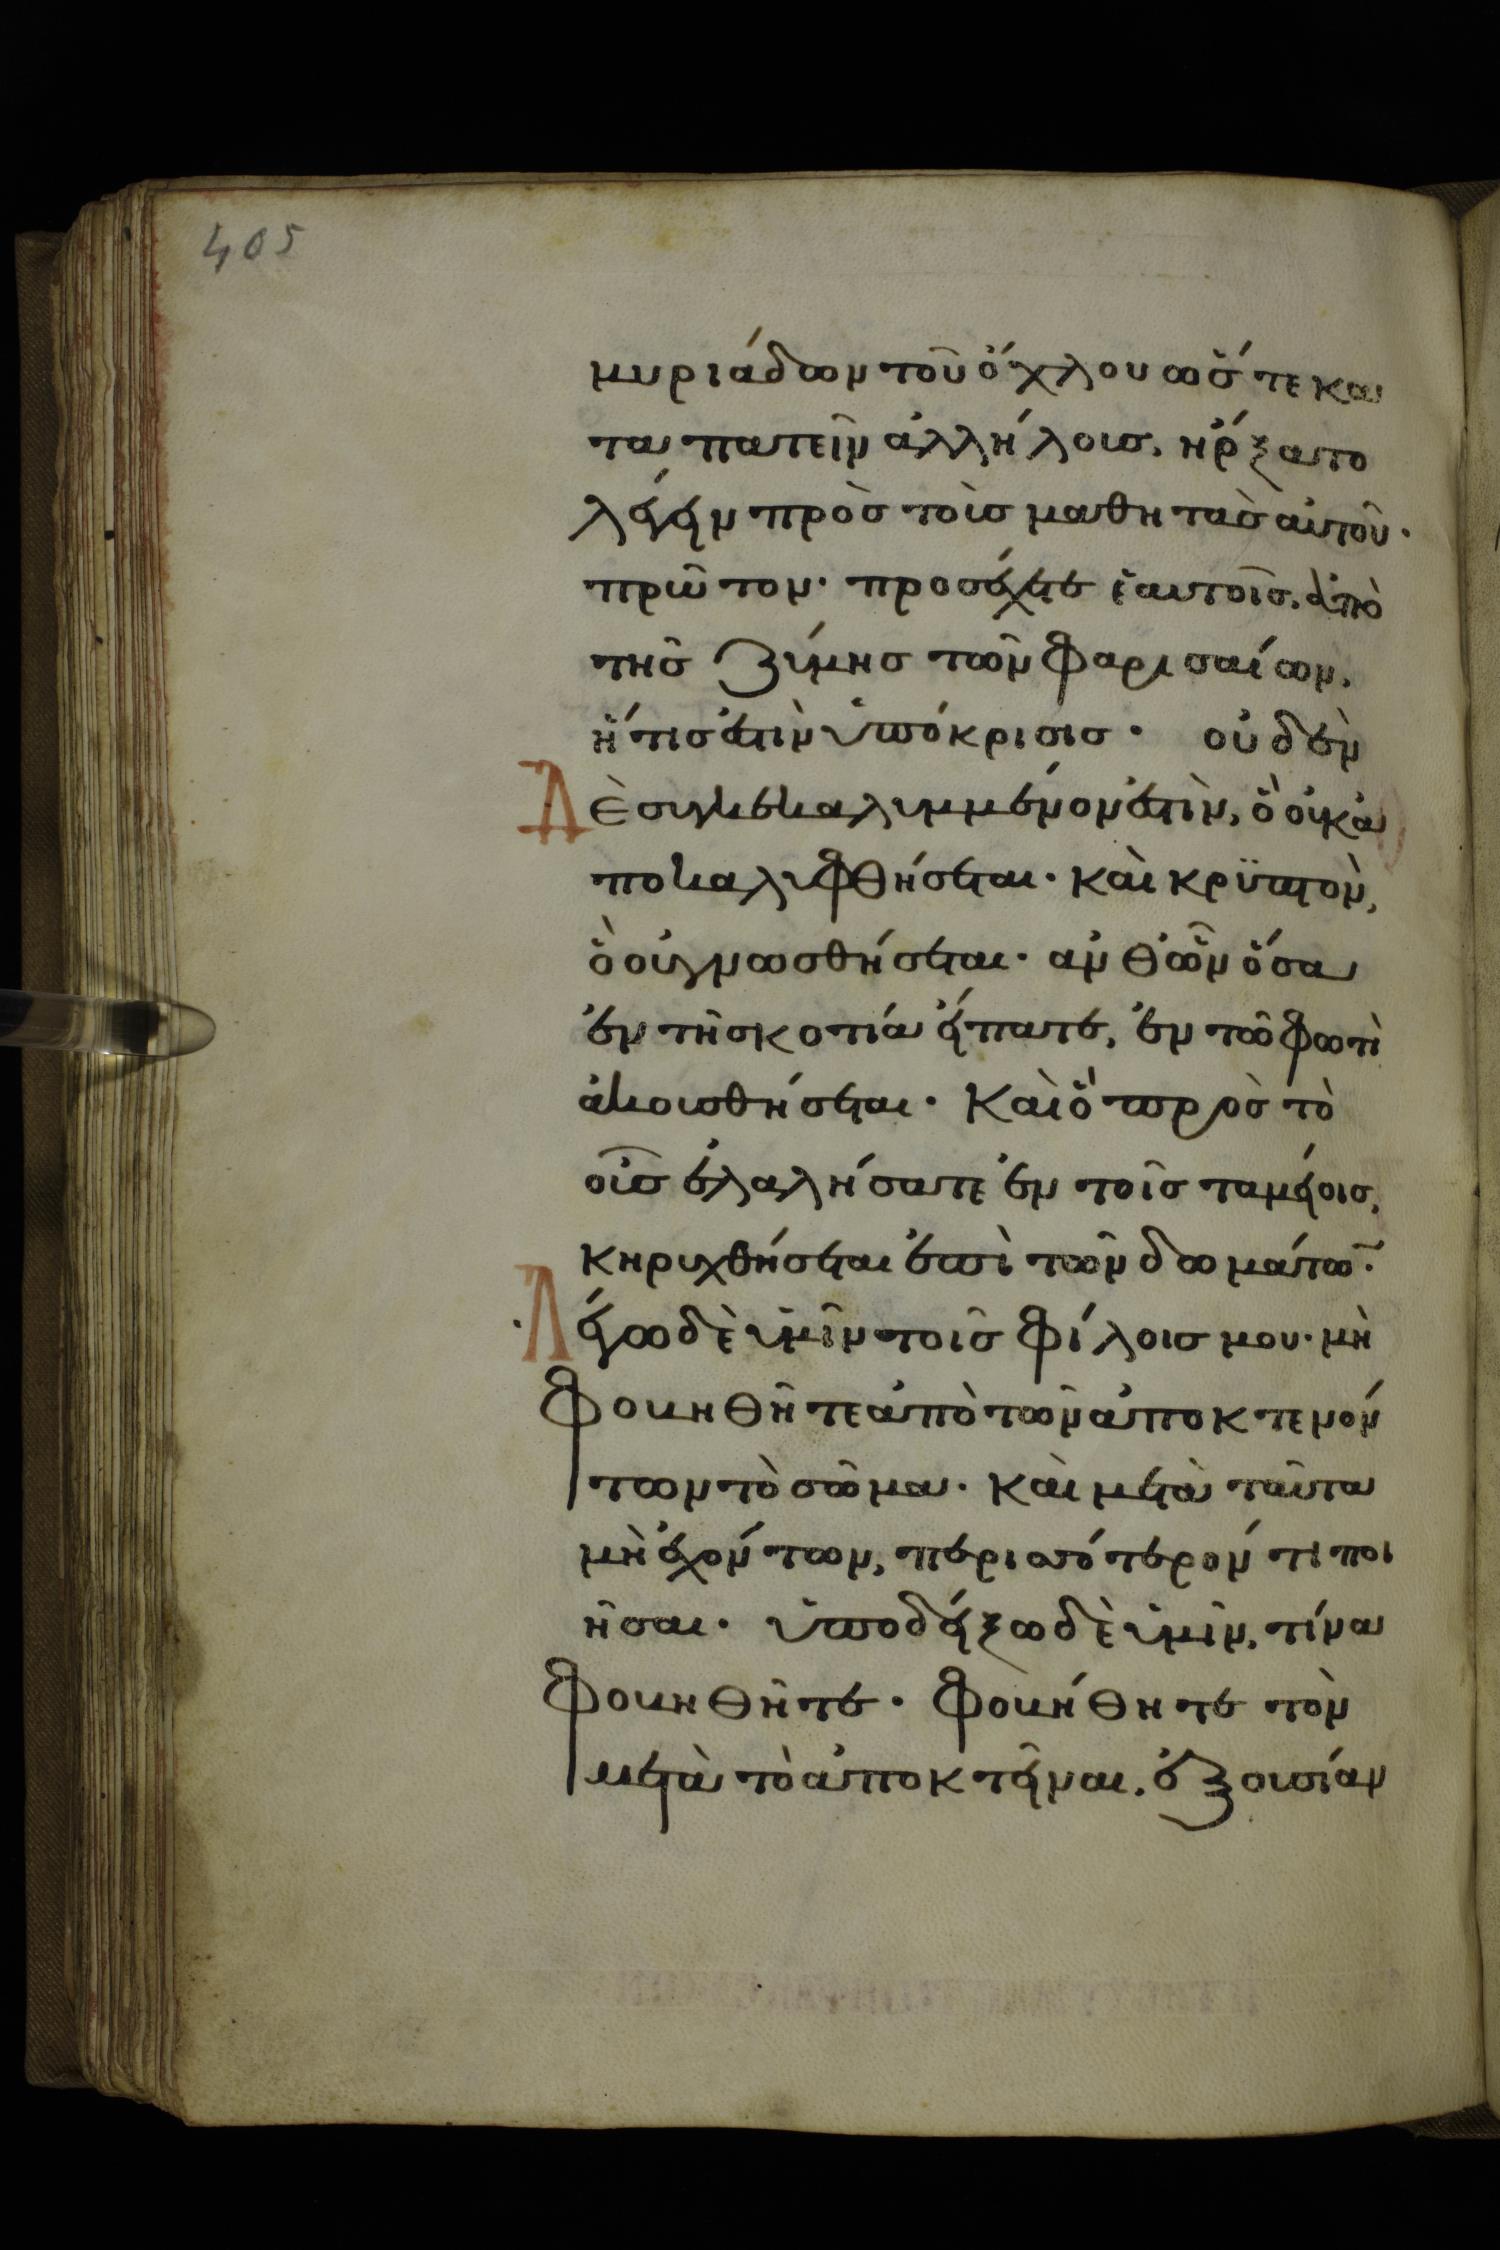 405
μυριάδων τοῦ ὄχλου ὥστε κα
ταπατεῖν ἀλλήλους, ἤρξατο
λέγειν πρὸς τοὺς μαθητὰς αὐτοῦ·
πρῶτον· προσέχετε ἑαυτοῖς, ἀπὸ
τῆς ζύμης τῶν φαρισαίων,
ἥτις ἐστὶν ὑπόκρισις· οὐδὲν
Δὲ συγκεκαλυμμένον ἐστὶν, ὃ οὐκ ἀ
ποκαλυφθήσεται· καὶ κρυπτὸν,
ὃ οὐ γνωσθήσεται· ἀνθ ὧν ὅσα
ἐν τῆ σκοτία εἴπατε, ἐν τῶ φωτὶ
ἀκουσθήσεται· καὶ ὃ πρὸς τὸ
οὖς ἐλαλήσατε ἐν τοῖς ταμείοις,
κηρυχθήσεται ἐπὶ τῶν δωμάτω̅·
Λέγω δὲ ὑμῖν τοῖς φίλοις μου· μὴ
φοβηθῆτε ἀπὸ τῶν ἀποκτενόν
των τὸ σῶμα· καὶ μετὰ ταῦτα
μὴ ἐχόντων, περισσότερόν τι ποι
ῆσαι· ὑποδείξω δὲ ὑμῖν, τίνα
φοβηθῆτε· φοβήθητε τὸν
μετὰ τὸ ἀποκτεῖναι, ἐξουσίαν